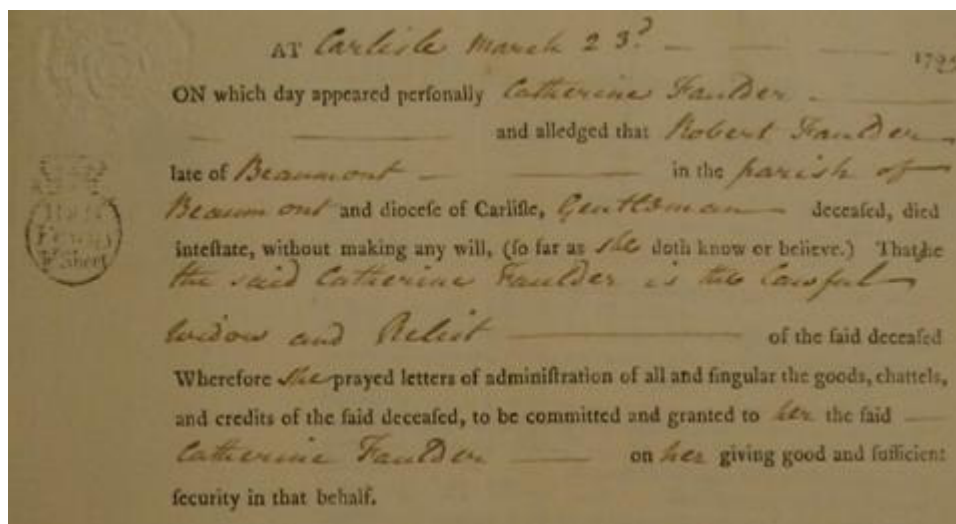 AT Carlisle March 23.d 1795
ON which day appeared perſonally Catherine Faulder
and alledged that Robert Faulder
late of Beaumont in the pariſh of
Beaumont and dioceſe of Carliſle, Gentleman deceaſed, died
inteſtate, without making any will, (ſo far as ſhe doth know or believe.) That ſhe
the said Catherine Faulder is the Lawful
Widow and Relict of the ſaid deceaſed
Wherefore She prayed letters of adminiſtration of all and ſingular the goods, chattels,
and credits of the ſaid deceaſed, to be committed and granted to her the ſaid
Catherine Faulder on her giving good and ſufficient
ſecurity in that behalf.
Half
Penny
Sheet